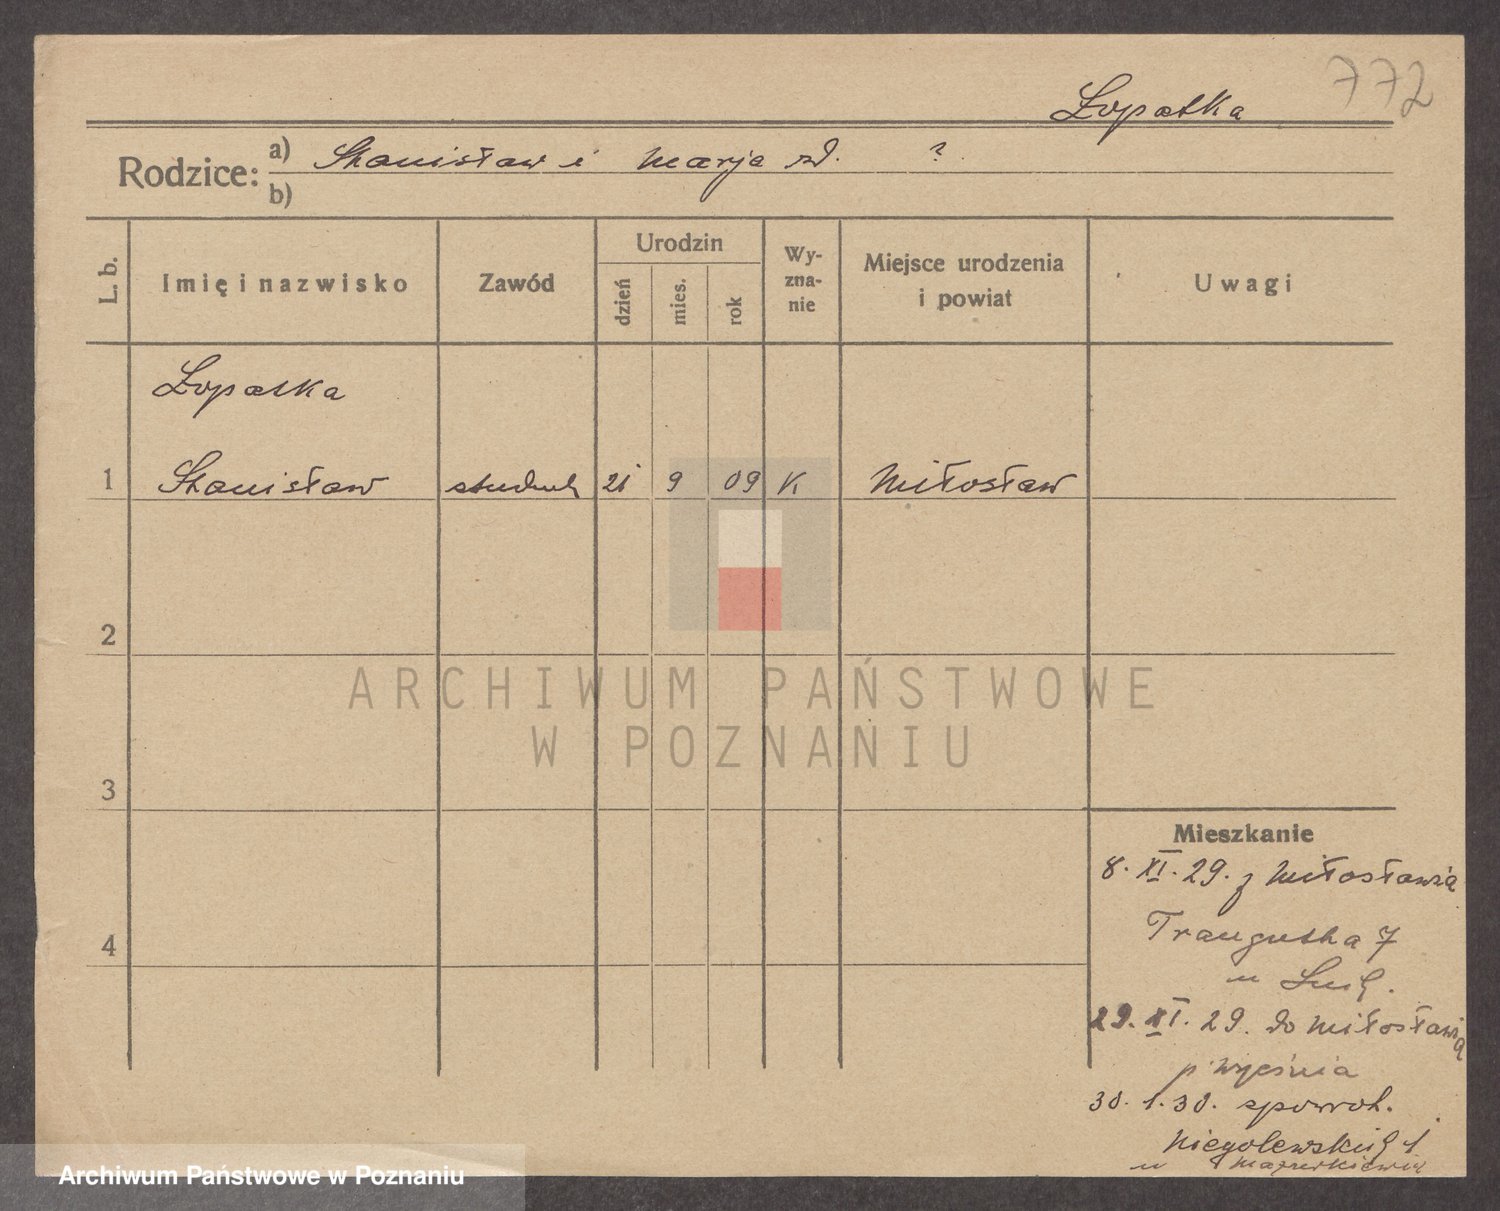 772
Łopatka
Rodzice: a) Stanisław i Marja zd. ?
b)
L. b.
Imię i nazwisko
Zawód
Urodzin
dzień
mies.
rok
Wy-
zna-
nie
Miejsce urodzenia
i powiat
Uwagi
Łopatka
1 Stanisław student 21 9 09 K Miłosław
2
3
4
Mieszkanie
8. XI. 29. z Miłosławia
Traugutta 7
u
29. XI. 29. do Miłosławia
p
30. 1. 30. spowrot.
Niegolewskich 1
u
ARCHIWUM PAŃSTWOWE
W POZNANIU
Archiwum Państwowe w Poznaniu